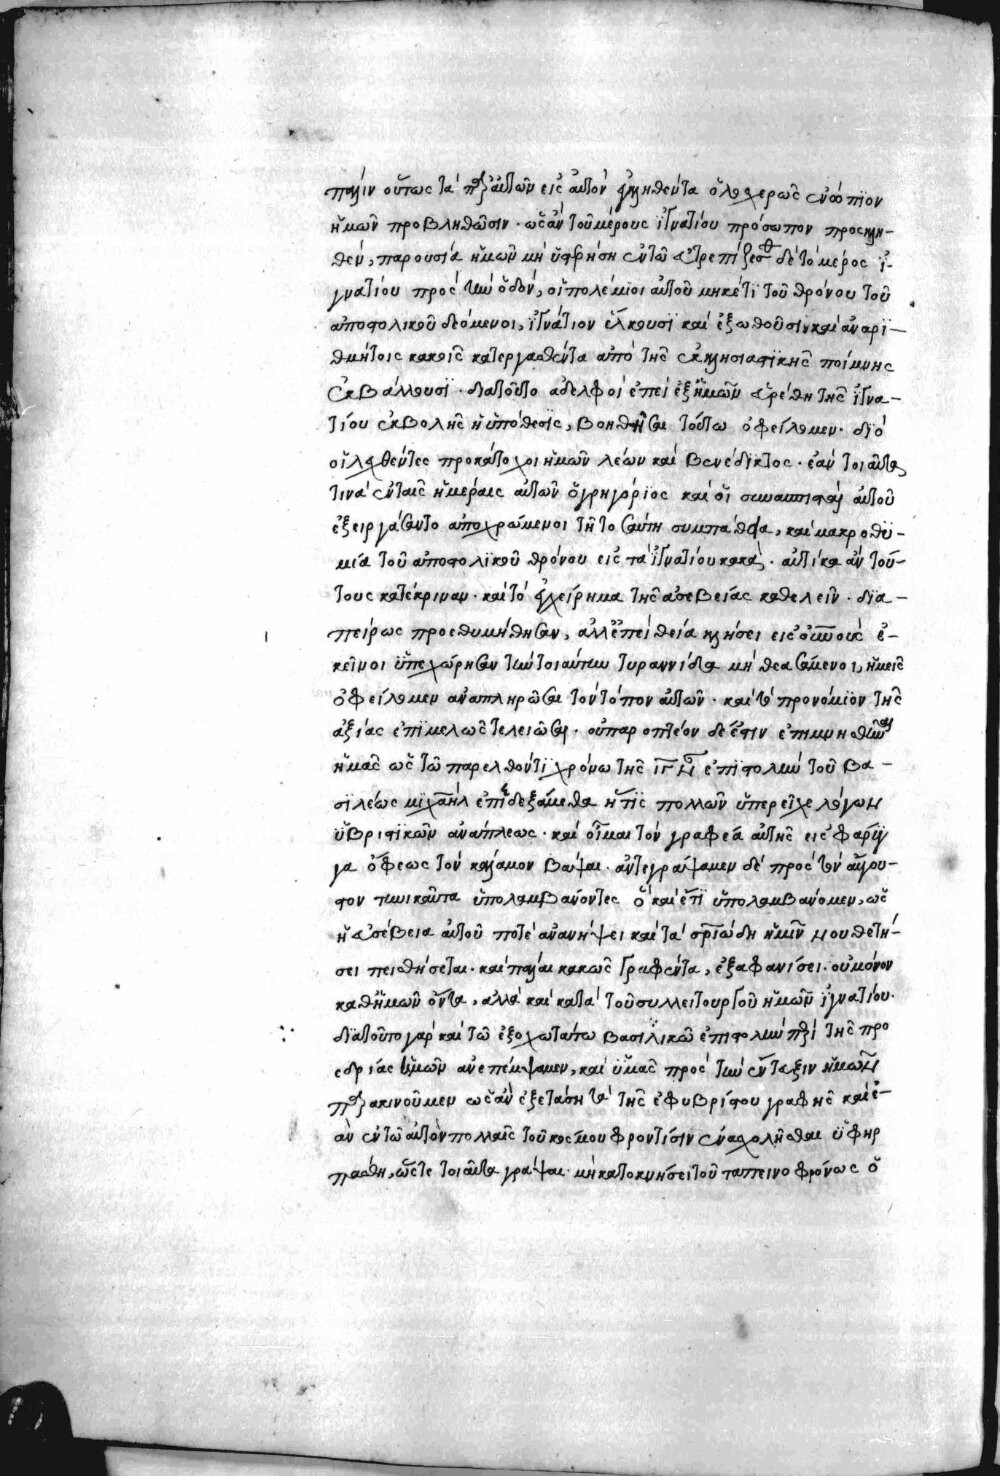 πάλιν οὕτως τὰ παρ' αὐτῶν εἰς αὐτὸν ἐγκληθέντα ὁλοχερῶς ἐνώπϊον
ἡμῶν προβληθῶσιν· ὡς ἂν τοῦ μέρους ἰγνατίου πρόσωπον προσκλη-
θὲν, παρουσία ἡμῶν μὴ ὑφθήση ἐν τῶ εὐτρεπίζεσθαι δὲ τὸ μέρος ἰ-
γνατίου πρὸς τὴν ὁδὸν, οἱ πολέμϊοι αὐτοῦ μηκέτϊ τοῦ θρόνου τοῦ
ἀποστολικοῦ δεόμενοι, ἰγνάτιον ἕλκουσϊ καὶ ἐξωθοῦσιν καὶ ἀναρϊ-
θμήτοις κακοῖς κατεργασθέντα ἀπὸ τῆς ἐκκλησιαστϊκῆς ποίμνης
ἐκβάλλουσϊ· διατοῦτο ἀδελφοὶ ἐπεὶ ἐξ ἡμῶν εὑρέθη τῆς ἰγνα-
τίου ἐκβολῆς ἡ ὑπόθεσϊς, βοηθῆσαι τούτω ὀφείλομεν· διὸ
οἱ λεχθέντες προκάτοχοι ἡμῶν λέων καὶ βενέδικτος· ἐὰν τοιαῦτα
τινὰ ἐν ταῖς ἡμέραις αὐτῶν ὁ γρηγόρϊος καὶ οἱ συνασπισταὶ αὐτοῦ
ἐξειργάσαντο ἀποχρώμενοι τῆ τοσαύτη συμπαθεία, καὶ μακροθϋ-
μία τοῦ ἀποστολϊκοῦ θρόνου εἰς τὰ ἰγνατίου κακά· αὐτίκα ἂν τού-
τους κατέκριναν· καὶ τὸ ἐγχείρημα τῆς ἀσεβείας καθελεῖν· δϊα-
πείρως προεθυμήθησαν, ἀλλ' ἐπεὶ θεία κλήσει εἰς οὐρανοὺς ἐ-
κεῖνοι ὑπεχώρησαν τὴν τοιαύτην τυραννίδα μὴ θεασάμενοι, ἡμεῖς
ὀφείλομεν ἀναπληρῶσαι τὸν τόπον αὐτῶν· καὶ τὸ προνόμϊον τῆς
ἀξίας ἐπϊμελῶς τελειῶσαι· οὐ παροπτέον δὲ ἐστιν ἐπιμνησθῆναι
ἡμᾶς ὡς τῶ παρελθόντϊ χρόνω τῆς ἐπϊστολὴν τοῦ βα-
σϊλέως μϊχαὴλ ἐπϊδεξάμεθα ἥτϊς πολλῶν ὑπερεῖχε λόγων
ὑβριστϊκῶν ἀνάπλεως· καὶ οἶμαι τὸν γραφέα αὐτῆς εἰς φάρϋγ
γα ὄφεως τὸν κάλαμον βάψαι· ἀντεγράψαμεν δὲ πρὸς τὸν αὔγου-
στον τηνικαῦτα ὑπολαμβάνοντες ὃ καὶ ἔτϊ ὑπολαμβάνομεν, ὡς
ἡ εὐσέβεια αὐτοῦ ποτὲ ἀνανήψει καὶ τὰ σωτηριώδη ἡμῖν νουθετή-
σει πεισθήσεται· καὶ πάλαι κακῶς γραφέντα, ἐξαφανίσει· οὐ μόνον
καθ' ἡμῶν ὄντα, ἀλλὰ καὶ κατὰ τοῦ συλλειτουργοῦ ἡμῶν ἰγνατίου·
διατοῦτο γὰρ καὶ τῶ ἐξοχωτάτω βασϊλικῶ ἐπιστολὴν περὶ τῆς προ
εδρίας ὑμῶν ἀνεπέμψαμεν, καὶ ὑμᾶς πρὸς τὴν ἔνταξιν ἡμῶν
παρακινοῦμεν ὡς ἂν ἐξετάση τὰ τῆς ἐφυβρίστου γραφῆς καὶ ἐ-
ὰν ἐν τῶ αὐτὸν πολλαῖς τοῦ κόσμου φροντίσϊν ἐνασχολῆσθαι ὑφηρ
πάσθη, ὥστε τοιαῦτα γράψαι· μὴ κατοκνήσει τοῦ ταπεινοφρόνως ὃ